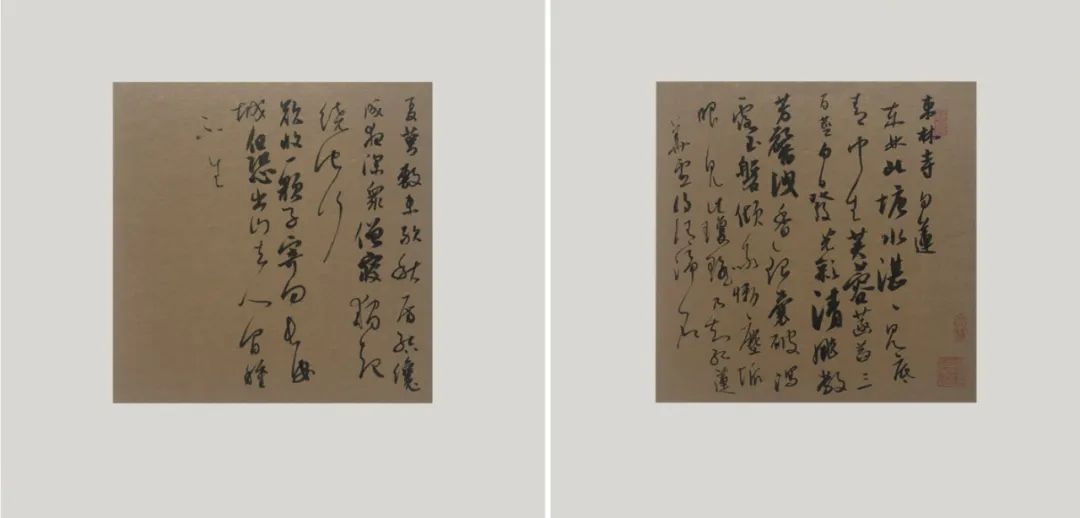 東林寺白蓮
東林北塘水湛〻見底
清中生芙蓉菡萏三
百莖白日發光彩清飈散
芳馨洩香銀囊破瀉
露玉盤傾我慚塵垢
眼見此瓊瑤乃知紅蓮
華虛得清淨名
夏萼敷未歇秋房結纔
成夜深衆僧寢獨起
繞池行
欲收一顆子寄向長安
城但恐出山去人間種
不生